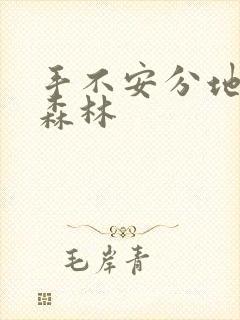 手不安分地
森林
毛岸青